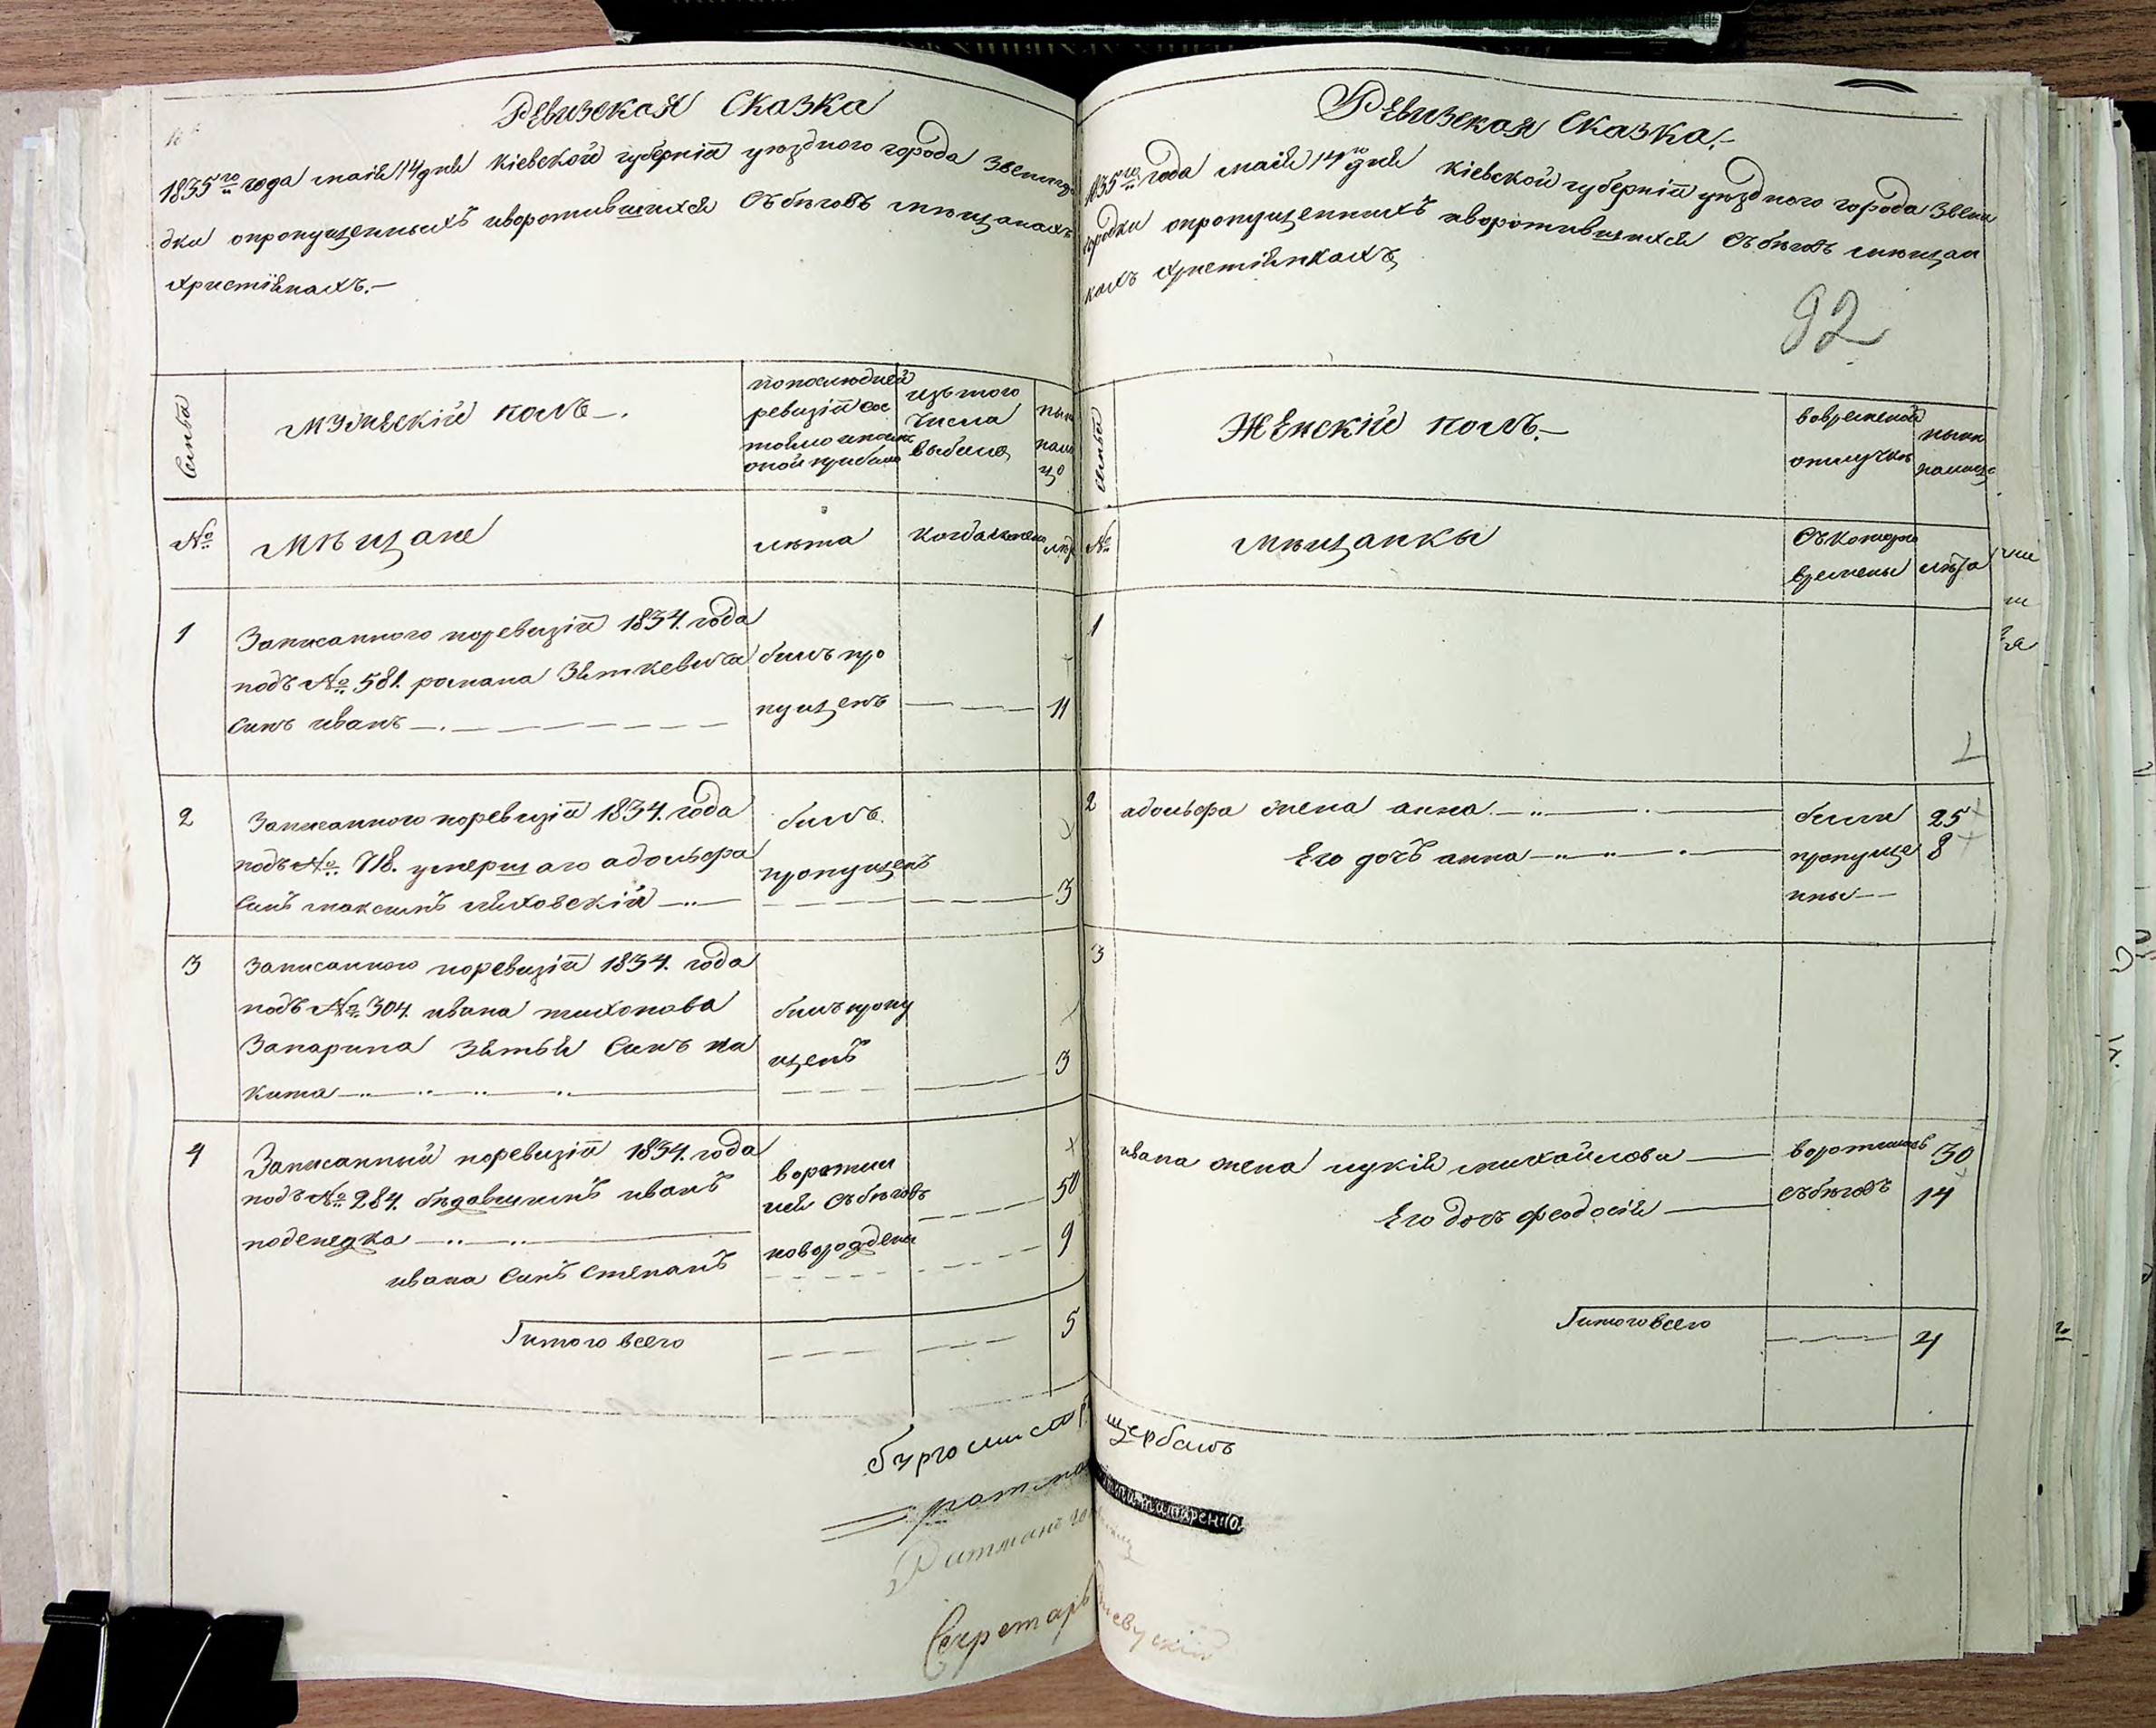 Ревизская Сказка
1835го года маія 14 дня Кіевской губерніи уѣздного города Звениго
дки опропущенныхъ иворотившихся Съ бѣговъ мѣщанахъ
христіянахъ.—
Семья
Мужескій полъ—.
попослѣдней
ревизіи сос
тояло и после
оной прибыло
изътого
числа
выбыло
ныне
нали
цо
№
Мѣщане
лѣта
когда именно
лѣта
1
Записанного поревизіи 1834. года
подъ № 581. романа Зяткевича
Синъ иванъ
билъ про
пущенъ
11
2
Записанного поревизіи 1834. года
подъ № 718. умершаго адольфа
Синъ максимъ Ляховскій
билъ
пропущенъ
3
3
Записанного поревизіи 1834. года
подъ № 304. ивана тихонова
Запарина Зятья Синъ ни
кита
билъ пропу
щенъ
3
4
Записанный поревизіи 1834. года
подъ № 284. бѣдавшимъ иванъ
иванa Синъ Степанъ
воротил
ися Съ бѣговъ
новорожденъ
50
9
Iитого всего
5
бургомистръ
Ратманъ
Секретарь
Ревизская Сказка.—
1835го года маія 14го дня Кіевской губерніи уѣздного города Звени
городки опропущенныхъ иворотившихся Съ бѣговъ мѣщан
кахъ христіянкахъ
92
Семья
Женскій полъ.—
вовременной
отлучкѣ
ныне
налицо
№
Мѣщанки
Съ которого
времены
лѣта
1
2
адольфа жена анна
Его дочь анна
били
пропуще
нны
25
8
3
ивана жена лукія михайлова
Его дочь феодосія
воротились
Съ бѣговъ
30
14
Iитого всего
4
щербакъ
татаренко